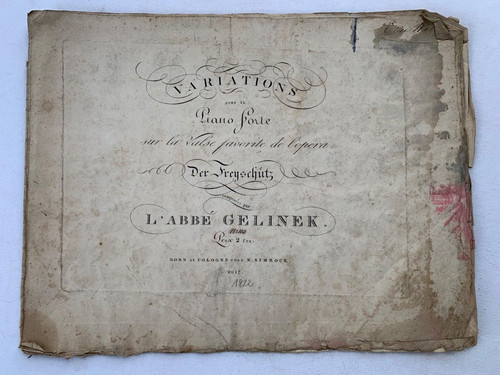 VARIATIONS
pour le
Piano Forte
sur la Valse favorite de l'opera
Der Freyschütz
composées par
L'ABBÉ GELINEK.
Prix 2 frs.
BONN et COLOGNE chez N. SIMROCK
1822